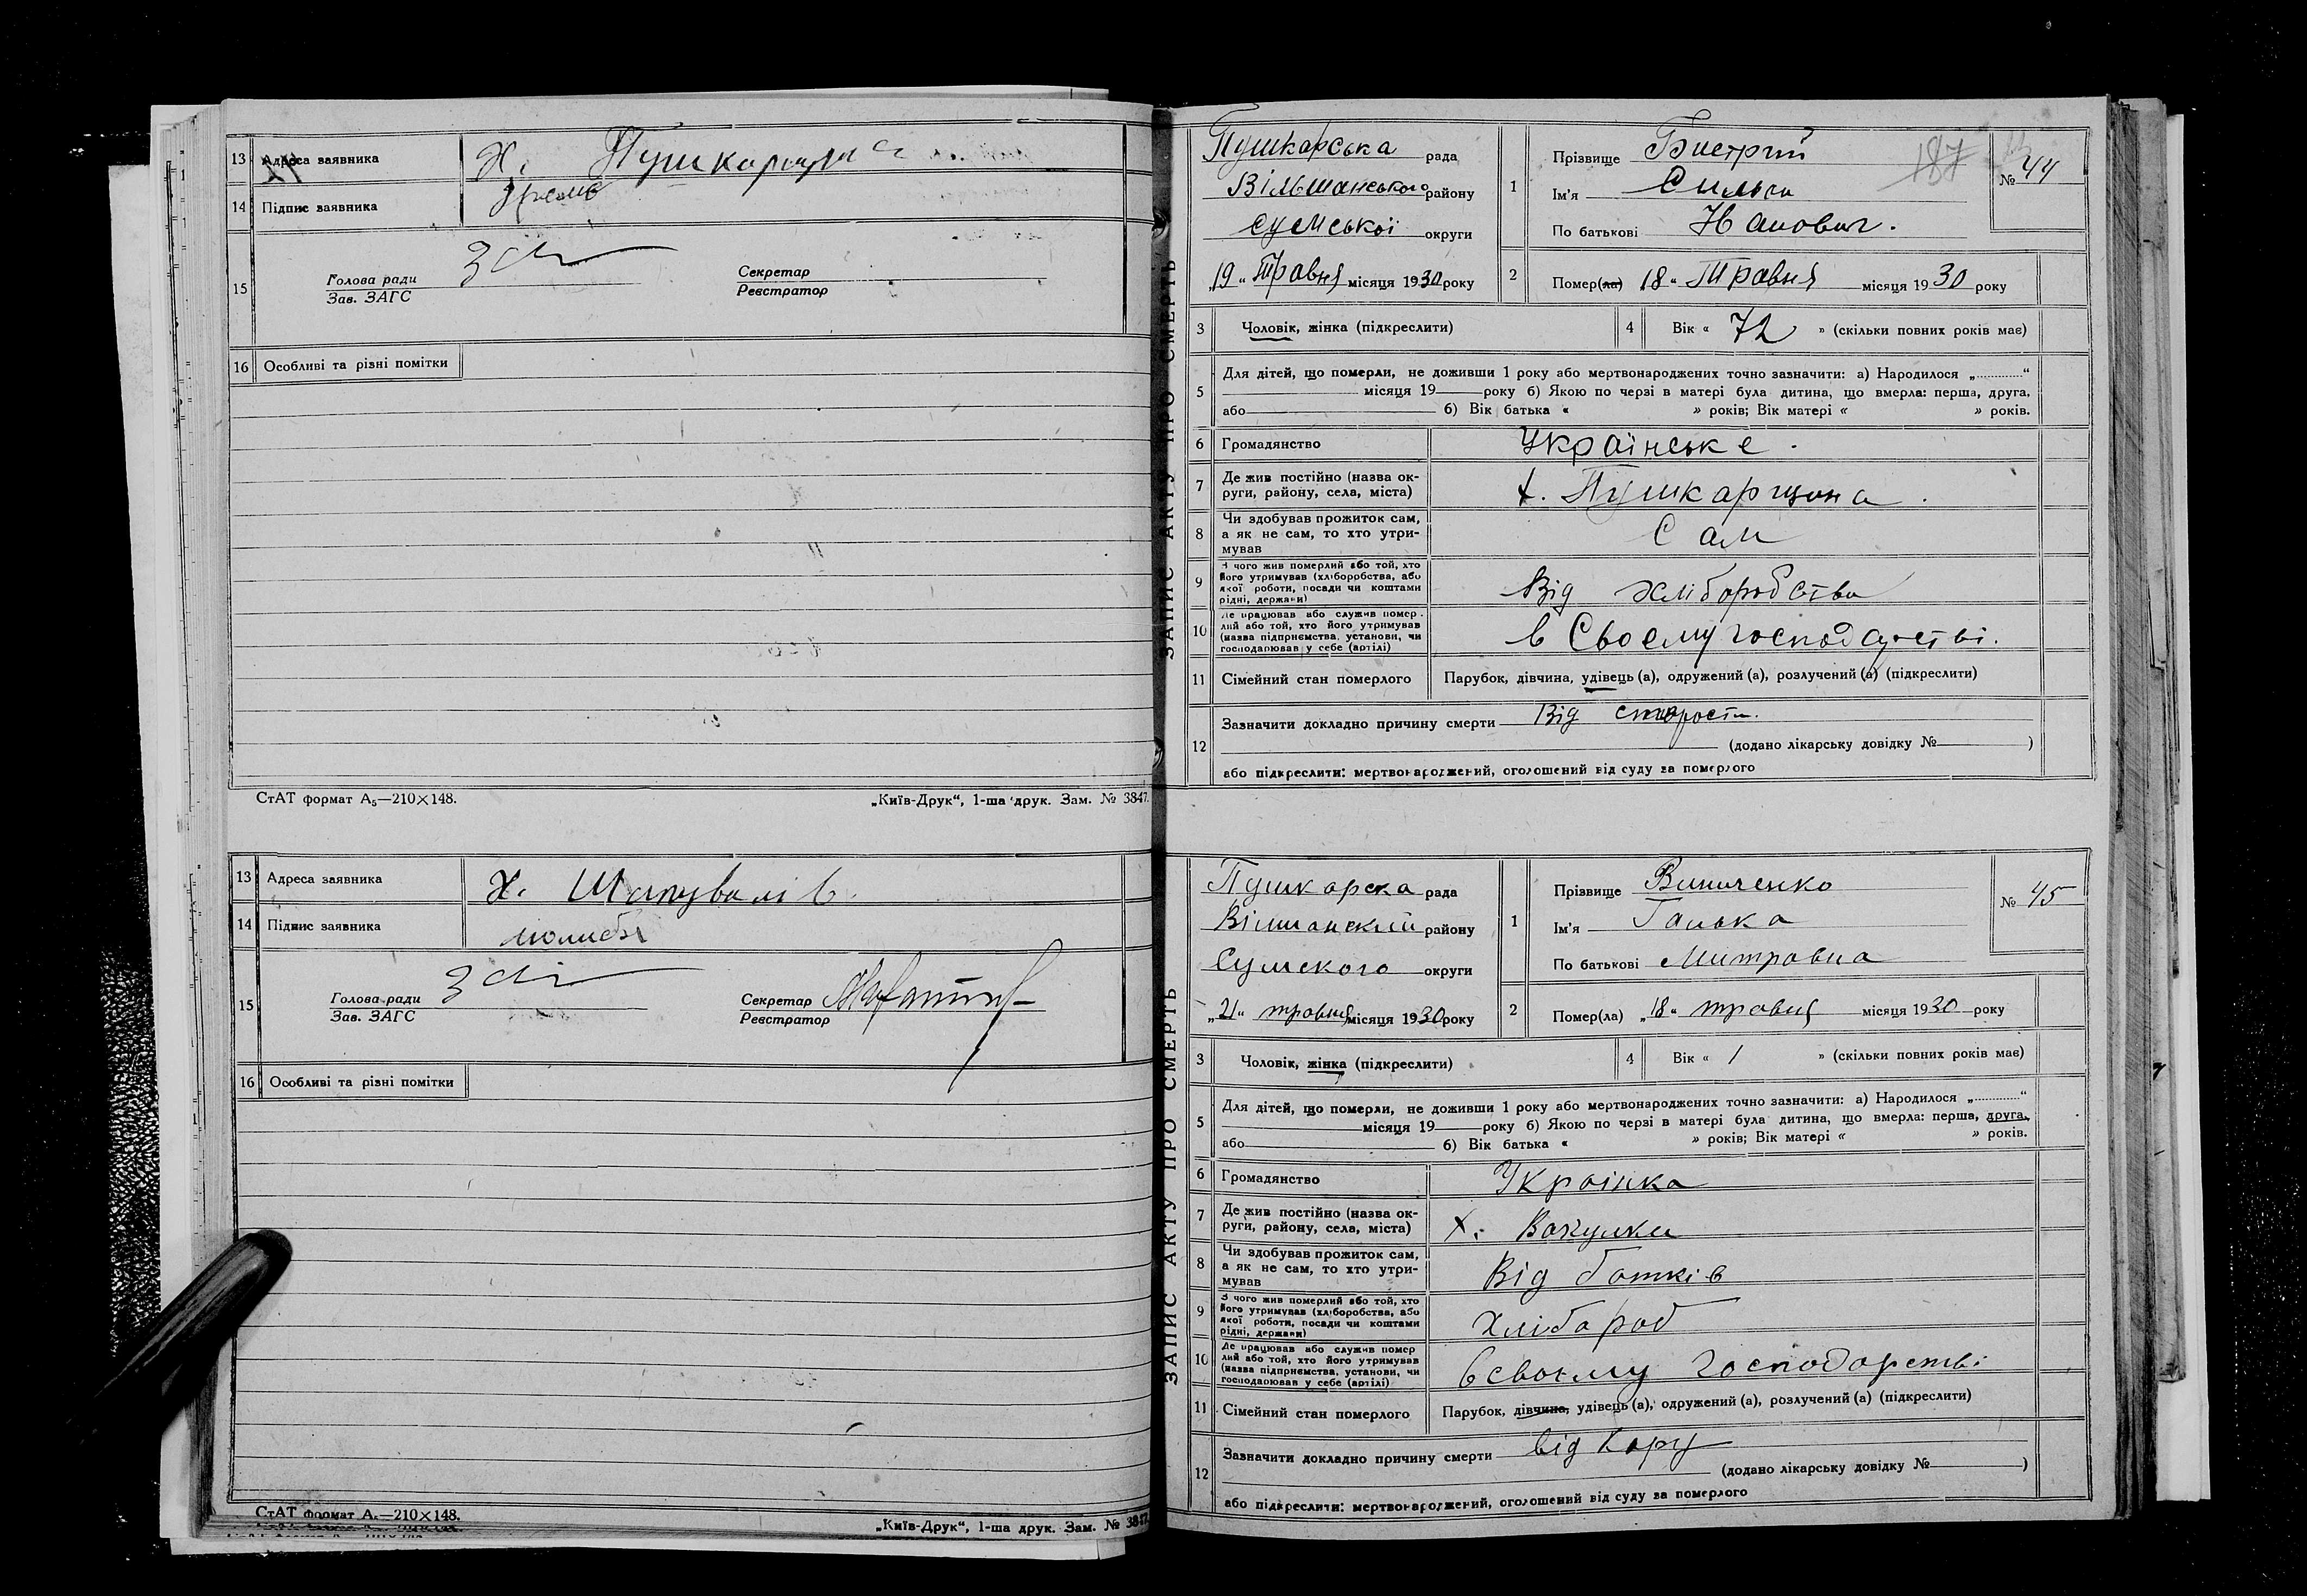 13 Адреса заявника Х. Пушкарщина
14 Підпис заявника
15 Голова ради
Зав. ЗАГС
Секретар
Реєстратор
16 Особливі та різні помітки
СтАТ формат А₅—210×148. „Київ-Друк“, 1-ша друк. Зам. № 3847.
13 Адреса заявника Х. Шаповалів.
14 Підпис заявника
15 Голова ради
Зав. ЗАГС
Секретар
Реєстратор
16 Особливі та різні помітки
СтАТ формат А₅—210×148.
„Київ-Друк“, 1-ша друк. Зам. № 3847.
ЗАПИС АКТУ ПРО СМЕРТЬ
Пушкарська рада
Вільшанського району
Сумської округи
„19“ Травня місяця 1930 року
1 Прізвище Бистрий
Ім'я
По батькові
187
№ 44
2 Помер(ла) 18 „ Травня місяця 1930 року
3 Чоловік, жінка (підкреслити)
4 Вік « 72 » (скільки повних років має)
5 Для дітей, що померли, не доживши 1 року або мертвонароджених точно зазначити: а) Народилося „.............“
місяця 19 року б) Якою по черзі в матері була дитина, що вмерла: перша, друга,
або б) Вік батька « » років; Вік матері « » років.
6 Громадянство Українське.
7 Де жив постійно (назва ок-
руги, району, села, міста) х. Пушкарщина.
8 Чи здобував прожиток сам,
а як не сам, то хто утри-
мував Сам
9 З чого жив померлий або той, хто
його утримував (хліборобства, або
якої роботи, посади чи коштами
рідні, держави) Від хліборобства
10 Де працював або служив помер-
лий або той, хто його утримував
(назва підприємства, установи, чи
господарював у себе (артілі) в Своему господарстві.
11 Сімейний стан померлого Парубок, дівчина, удівець (а), одружений (а), розлучений (а) (підкреслити)
12 Зазначити докладно причину смерти Від старости.
(додано лікарську довідку № )
або підкреслити: мертвонароджений, оголошений від суду за померлого
ЗАПИС АКТУ ПРО СМЕРТЬ
Пушкарска рада
Вілшанский району
Сумского округи
„21“ травня місяця 1930 року
1 Прізвище Виниченко
Ім'я Ганька
По батькові Митровна
№ 45
2 Помер(ла) „18“ травня місяця 1930 року
3 Чоловік, жінка (підкреслити)
4 Вік « 1 » (скільки повних років має)
5 Для дітей, що померли, не доживши 1 року або мертвонароджених точно зазначити: а) Народилося „.............“
місяця 19 року б) Якою по черзі в матері була дитина, що вмерла: перша, друга,
або б) Вік батька « » років; Вік матері « » років.
6 Громадянство Українка
7 Де жив постійно (назва ок-
руги, району, села, міста) Х. Вакулки
8 Чи здобував прожиток сам,
а як не сам, то хто утри-
мував Від батків
9 З чого жив померлий або той, хто
його утримував (хліборобства, або
якої роботи, посади чи коштами
рідні, держави) Хлібороб
10 Де працював або служив помер
лий або той, хто його утримував
(назва підприємства, установи, чи
господарював у себе (артілі) в своему господарстві
11 Сімейний стан померлого Парубок, дівчина, удівець (а), одружений (а), розлучений (а) (підкреслити)
12 Зазначити докладно причину смерти від кору
(додано лікарську довідку № )
або підкреслити: мертвонароджений, оголошений від суду за померлого